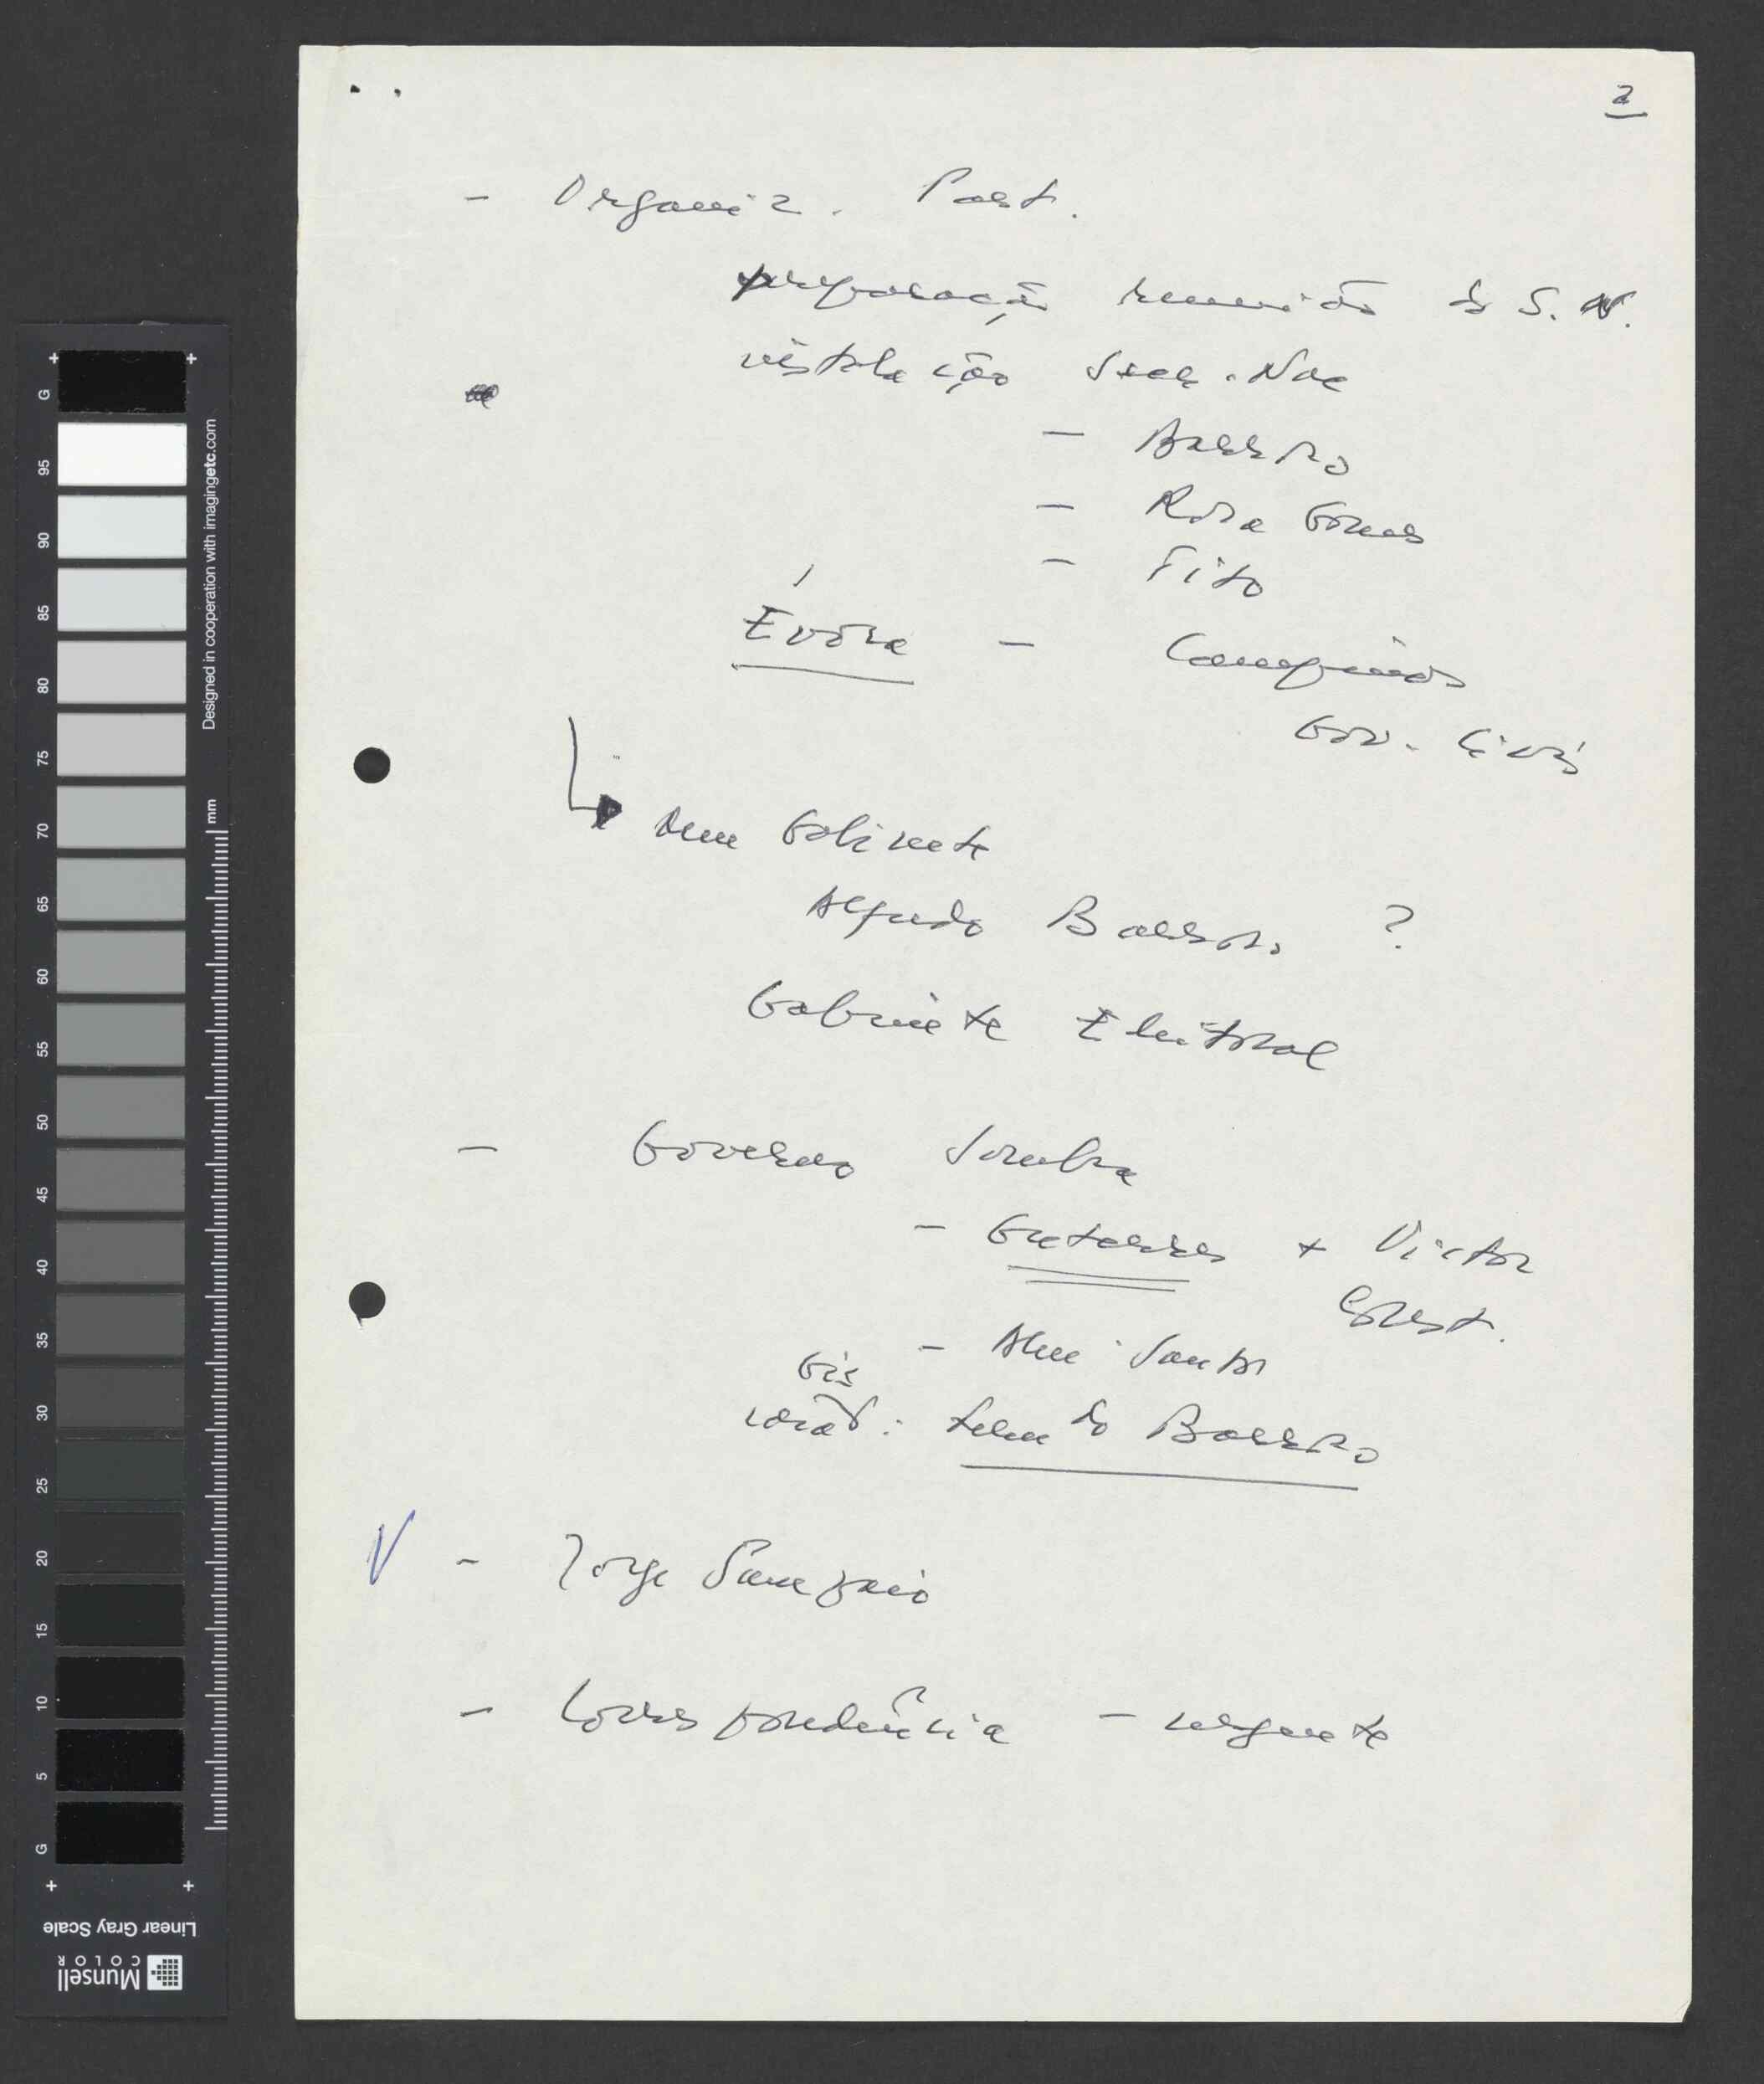 2
- Organiz. Part.
preparação reunião do S. N.
instalação Secr. Nac
- Barroso
- Rosa Gomes
- Tito
Évora - Campinos
Gov. Civis
meu Gabinete
Alfredo Barroso ?
Gabinete Eleitoral
- Governo Sombra
- Guterres + Victor
Const.
- Alm. Santos
Gis
coord: telm do Barroso
V - Jorge Sampaio
- Correspondência - urgente
G 95 90 85 80 75 70 65 60 55 50 45 40 35 30 25 20 15 10 5 G
Designed in cooperation with imagingetc.com
mm
Linear Gray Scale
Munsell
COLOR